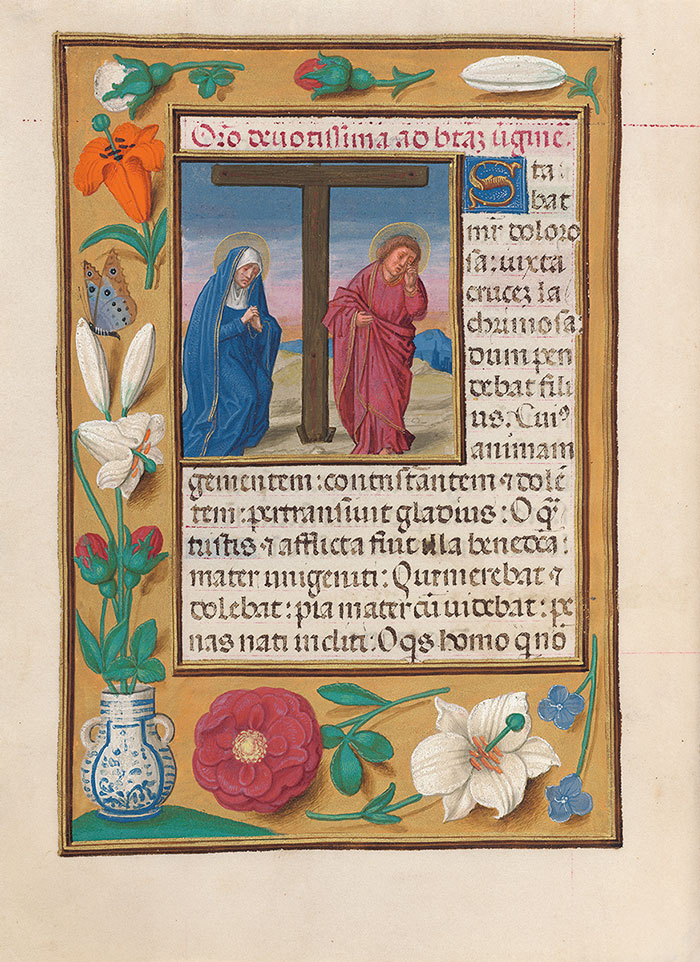 Or̃o deuotissima ad btaʒ ṽgineʒ.
Sta:
bat
mr̃ doloro
sa: iuxta
cruceʒ la
chrimosa:
dum pen
debat fili
us. Cuiꝰ
animam
gementem: contristantem ⁊ dolē
tem: pertransiuit gladius: O q̃
tristis ⁊ afflicta fuit illa benedc̃a:
mater unigeniti: Que merebat ⁊
dolebat: pia mater cū uidebat: pe
nas nati incliti: O q̃s homo q̃ nō